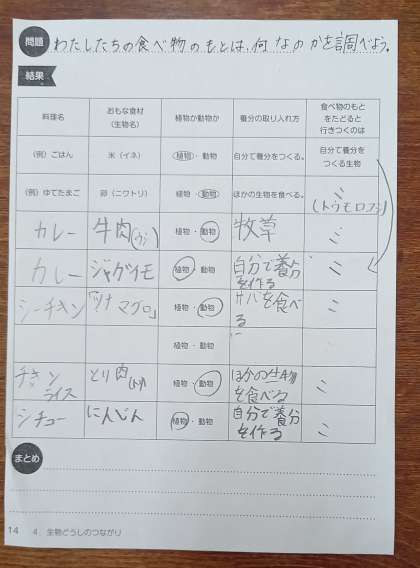 問題 わたしたちの食べ物のもとは、何なのかを調べよう。
結果
料理名 おもな食材(生物名) 植物か動物か 養分の取り入れ方 食べ物のもとをたどると行きつくのは
(例)ごはん 米(イネ) 植物・動物 自分で養分をつくる。 自分で養分をつくる生物
(例)ゆでたまご 卵(ニワトリ) 植物・動物 ほかの生物を食べる。 〃(トウモロコシ)
カレー 牛肉(ウシ) 植物・動物 牧草 〃
カレー ジャガイモ 植物・動物 自分で養分を作る 〃
シーチキン 「ツナマグロ」 植物・動物 サバを食べる 〃
植物・動物
チキンライス とり肉 植物・動物 ほかの生物を食べる 〃
シチュー にんじん 植物・動物 自分で養分を作る 〃
まとめ
14 4 生物どうしのつながり